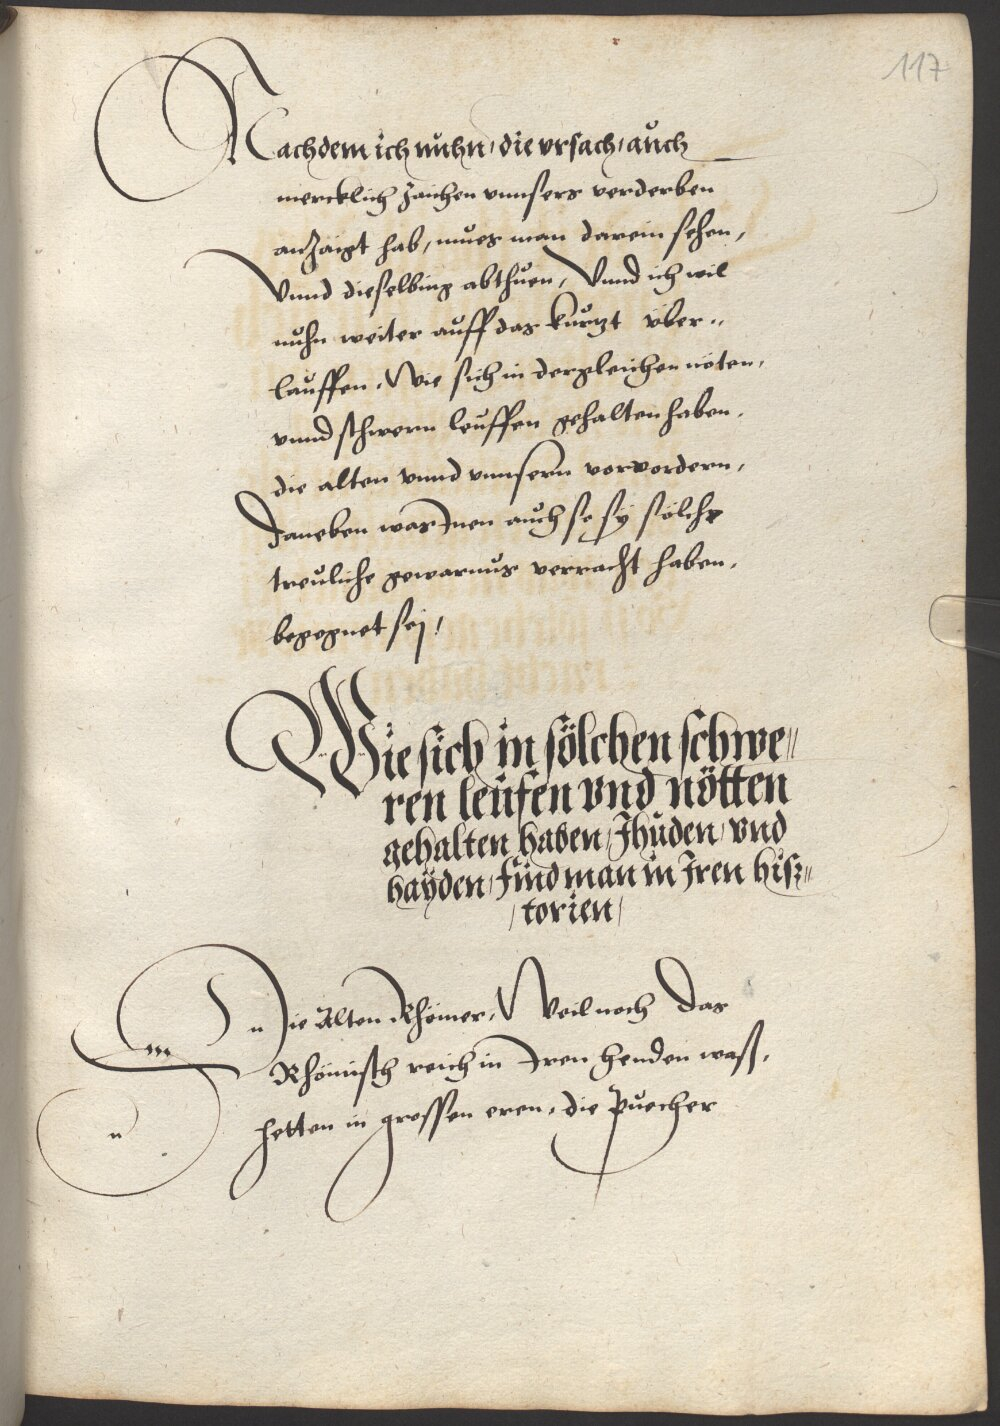 117
Nachdem ich nuhn / die vrsach / auch
mercklich zaichen vnnsers verderben
anzaigt hab, mues man darein sehen,
Vnnd dieselbing abthuen, Vnnd ich wil
nuhn weiter auff das kurtzt vber„
lauffen. Wie sich in dergleichen nöten,
vnnd schwern leuffen gehalten haben.
die alten vnnd vnnsern vorvordern,
Daneben was Inen auch so sy sölche
treuliche gewarnus verracht haben.
begegnet sej /
Wie sich in sölchen schwe„
ren leufen vnd nötten
gehalten haben / Jhuden / vnd
hayden / find man in Jren hisz„
/ torien /
Die Alten Rhömer, Weil noch Das
Rhömisch reich in Iren henden waß,
hetten in grossen eren, die Puecher